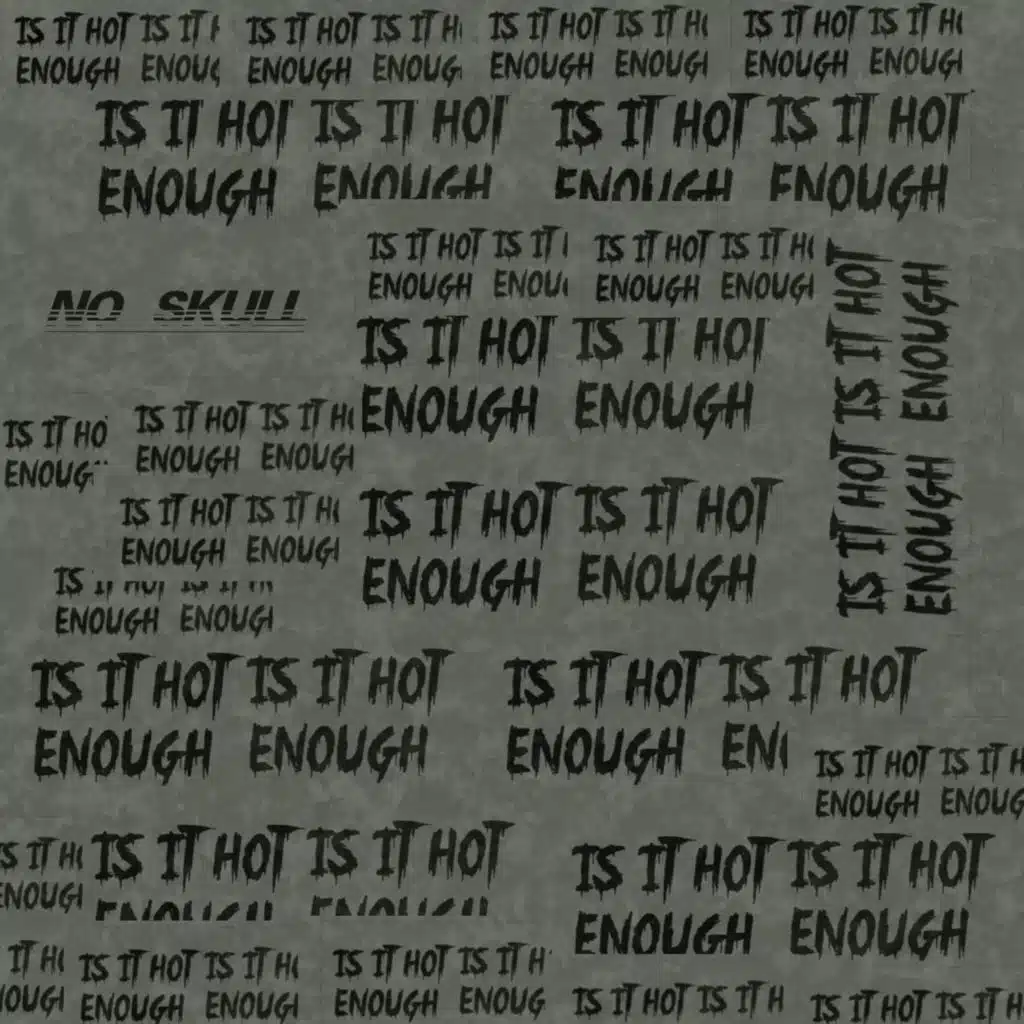 IS IT HOT IS IT
ENOUGH ENOUG
IS IT HOT IS IT H
ENOUGH ENOUG
IS IT HOT IS IT H
ENOUGH ENOUG
IS IT HOT IS IT H
ENOUGH ENOUG
IS IT HOT IS IT HOT
ENOUGH ENOUGH
IS IT HOT IS IT HOT
ENOUGH ENOUGH
IS IT HOT IS IT
ENOUGH ENOU
IS IT HOT IS IT H
ENOUGH ENOUG
IS IT HOT IS IT HOT
ENOUGH ENOUGH
NO SKULL
IS IT HOT IS IT HOT
ENOUGH ENOUGH
IS IT HO
ENOUG
IS IT HOT IS IT H
ENOUGH ENOUG
IS IT HOT IS IT H
ENOUGH ENOUG
IS IT HOT IS IT HOT
ENOUGH ENOUGH
IS
ENOUGH ENOUG
IS IT HOT IS IT HOT
ENOUGH ENOUGH
IS IT HOT IS IT HOT
ENOUGH EN
IS IT HOT IS IT H
ENOUGH ENOUG
IS IT H
ENOUG
IS IT HOT IS IT HOT
ENOUGH ENOUGH
IS IT HOT IS IT HOT
ENOUGH ENOUGH
IT H
OUG
IS IT HOT IS IT H
ENOUGH ENOUG
IS IT HOT IS IT H
ENOUGH ENOUG
IS IT HOT IS IT H
IS IT HOT IS IT H